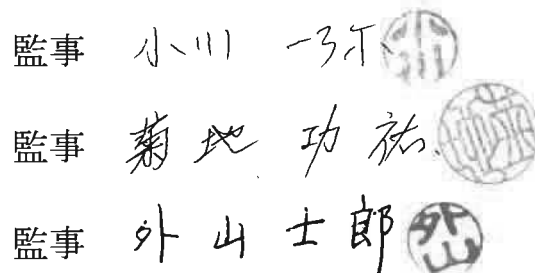 監事 小川 一弥
監事 菊地 功祐
監事 外山 士郎 外山